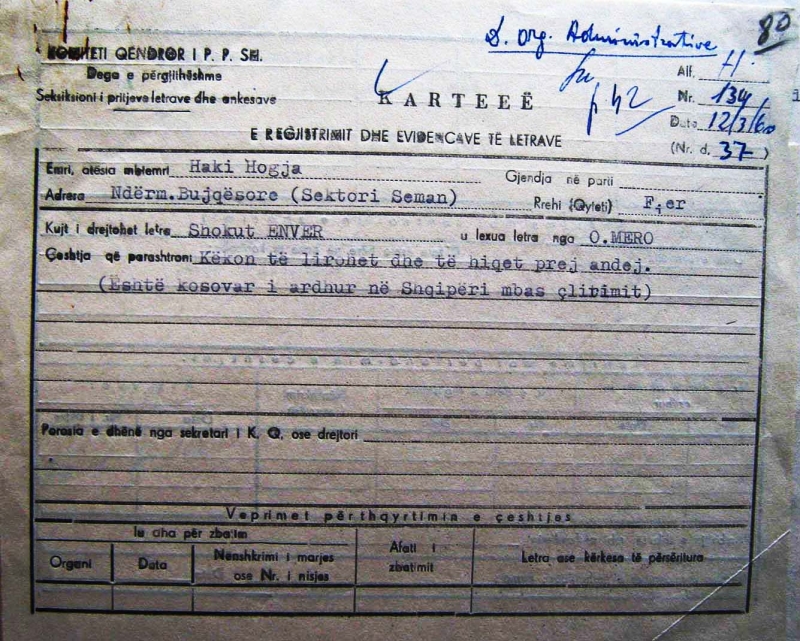 D. org. Administrative
80
KOMITETI QENDROR I P. P. SH.
Dega e përgjithëshme
Seksioni i pritjeve letrave dhe ankesave
KARTEEË
E REGJISTRIMIT DHE EVIDENCAVE TË LETRAVE
Alf. H
Nr. 134
Data 12/3/60
(Nr. d. 37)
Emri, atësia mbiemri Haki Hogja
Gjendja në parti
Adresa Ndërm.Bujqësore (Sektori Seman)
Rrehi (Qyteti) Fier
Kujt i drejtohet letra Shokut ENVER u lexua letra nga O.MERO
Çeshtja që parashtron: Këkon të lirohet dhe të hiqet prej andej.
(Është kosovar i ardhur në Shqipëri mbas çlirimit)
Porosia e dhënë nga sekretari i K. Q. ose drejtori
Veprimet për thqyrtimin e çeshtjes
Iu dha për zbatim
Organi
Data
Nënshkrimi i marjes
ose Nr. i nisjes
Afati i
zbatimit
Letra ose kërkesa të përsëritura